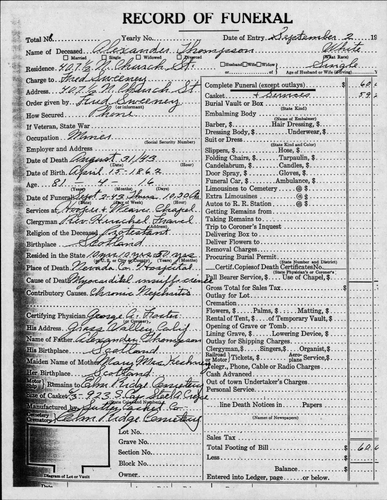 RECORD OF FUNERAL
Total No. Yearly No. Date of Entry September 2, 19
Name of Deceased Alexander Thompson White
Married Single Widowed Divorced Husband Wife Widow of (What Race)
Residence 407 N. Church St. Single
Age of Husband or Wife (if living)
Charge to Fred Sweeney
Address 407 N. Church St
Order given by Fred Sweeney
How Secured Phone
If Veteran, State War
Occupation Miner
(Social Security Number)
Employer
Date of Death August 31/43
Date of Birth April 15-1862
Age 81 4 16
Date of Funeral Sept 2-43 10:30 A
Services at Hooper & Weaver Chapel
Clergyman Rev
Religion of the Deceased Protestant
Birthplace Scotland
Resided in the State
Place of Death Nevada Co. Hospital
Cause of Death Myocardial insufficiency
Contributory Causes Chronic Nephritis
Certifying Physician George A. Foster
His Address Grass Valley Calif
Name of Father Alexander Thompson
His Birthplace Scotland
Maiden Name of Mother Mary
Her Birthplace Scotland
Remains to Elm Ridge Cemetery
Size of Casket
Manufactured by Casket Co.
Cemetery Elm Ridge Cemetery
Lot No.
Grave No.
Section No.
Block No.
Owner
Diagram of Lot or Vault
Complete Funeral (except outlays) $ 60
Casket & Services 59
Burial Vault or Box
(State Kind)
Embalming Body
(Name of Embalmer)
Barber, $ Hair Dressing, $
Dressing Body, $ Underwear, $
Suit or Dress
(State Kind and Color)
Slippers, $ Hose, $
Folding Chairs, $ Tarpaulin, $
Candelabrum, $ Candles, $
Door Spray, $ Gloves, $
Funeral Car, $ Ambulance, $
Limousines to Cemetery @ $
Extra Limousines @ $
Autos to R. R. Station @ $
Getting Remains from
Taking Remains to
Trip to Coroner's Inquest
Delivering Box to
Delivering Flowers to
Removal Charges
(State Number and District)
Procuring Burial Permit
Certif. Copies of Death Certificates No.
(State Physician's or Coroner's)
Pall Bearer Service, $ Use of Chapel, $
Gross Total for Sales Tax
Outlay for Lot
Cremation
Flowers, $ Palms, $ Matting, $
Rental of Tent, $ of Temporary Vault, $
Opening of Grave or Tomb
Lining Grave, $ Lowering Device, $
Outlay for Shipping Charges
Clergyman, $ Singers, $ Organist, $
Railroad Motor Tickets, $ Aero-plane Service, $
Telegr., Phone, Cable or Radio Charges
Cash Advanced
Out of town Undertaker's Charges
Personal Service
line Death Notices in Papers
(Names of Newspapers)
Sales Tax
Total Footing of Bill $ 60
Less
Balance
Entered into Ledger, page or below.